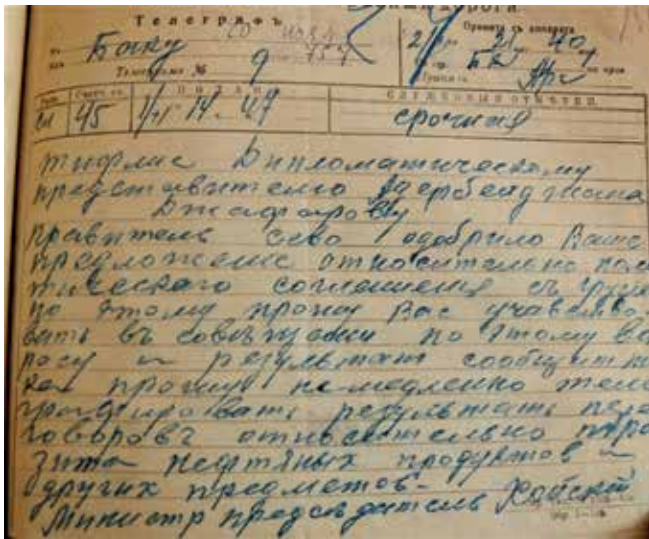 Телеграфъ
Принята съ аппарата
Баку
21 40
Телеграмма № 9
СЛУЖЕБНЫЯ ОТМѢТКИ.
45 14 47 срочная
тифлис Дипломатическому
представителю Азербейджана
Джафарову
правительсево одобрило Ваше
предложение относительно поли
тического соглашения съ грузи
по этому прошу Вас учавство
вать въ совѣщании по этому во
росу и результат сообщить
прошу немедленно теле
графировать результаты пере
говоровъ относительно тран
зита нефтяных продуктов и
других предметов-
Министр председатель Хойский